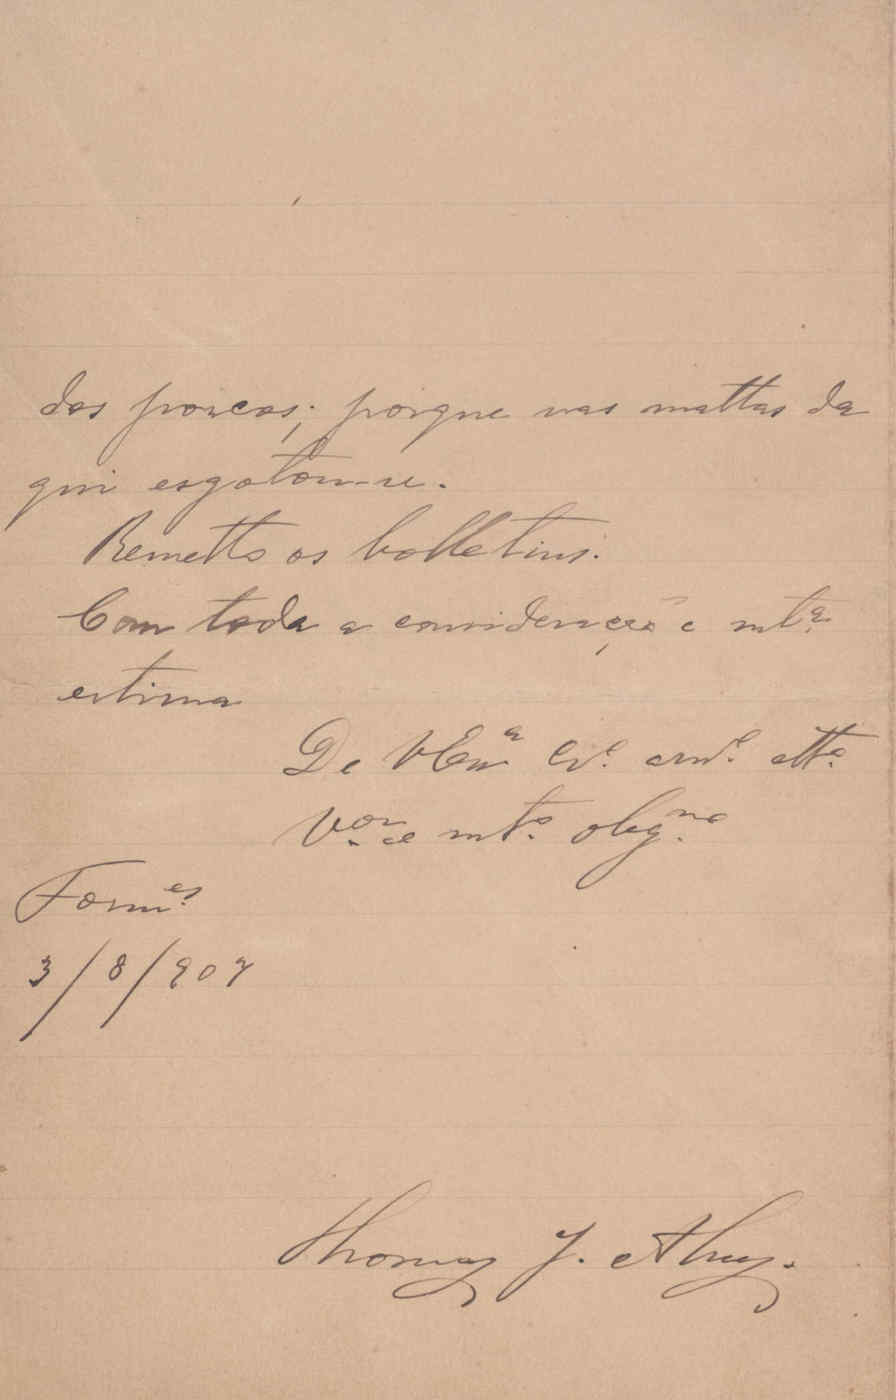 dos porcos; porque nas mattas da
qui esgotou-se.
Remetto os bolletins.
Com toda a consideração e mta.
estima
De VExa Cro. amo. atto.
Vor. e mto. obgmo.
3/8/907
Thomaz J.